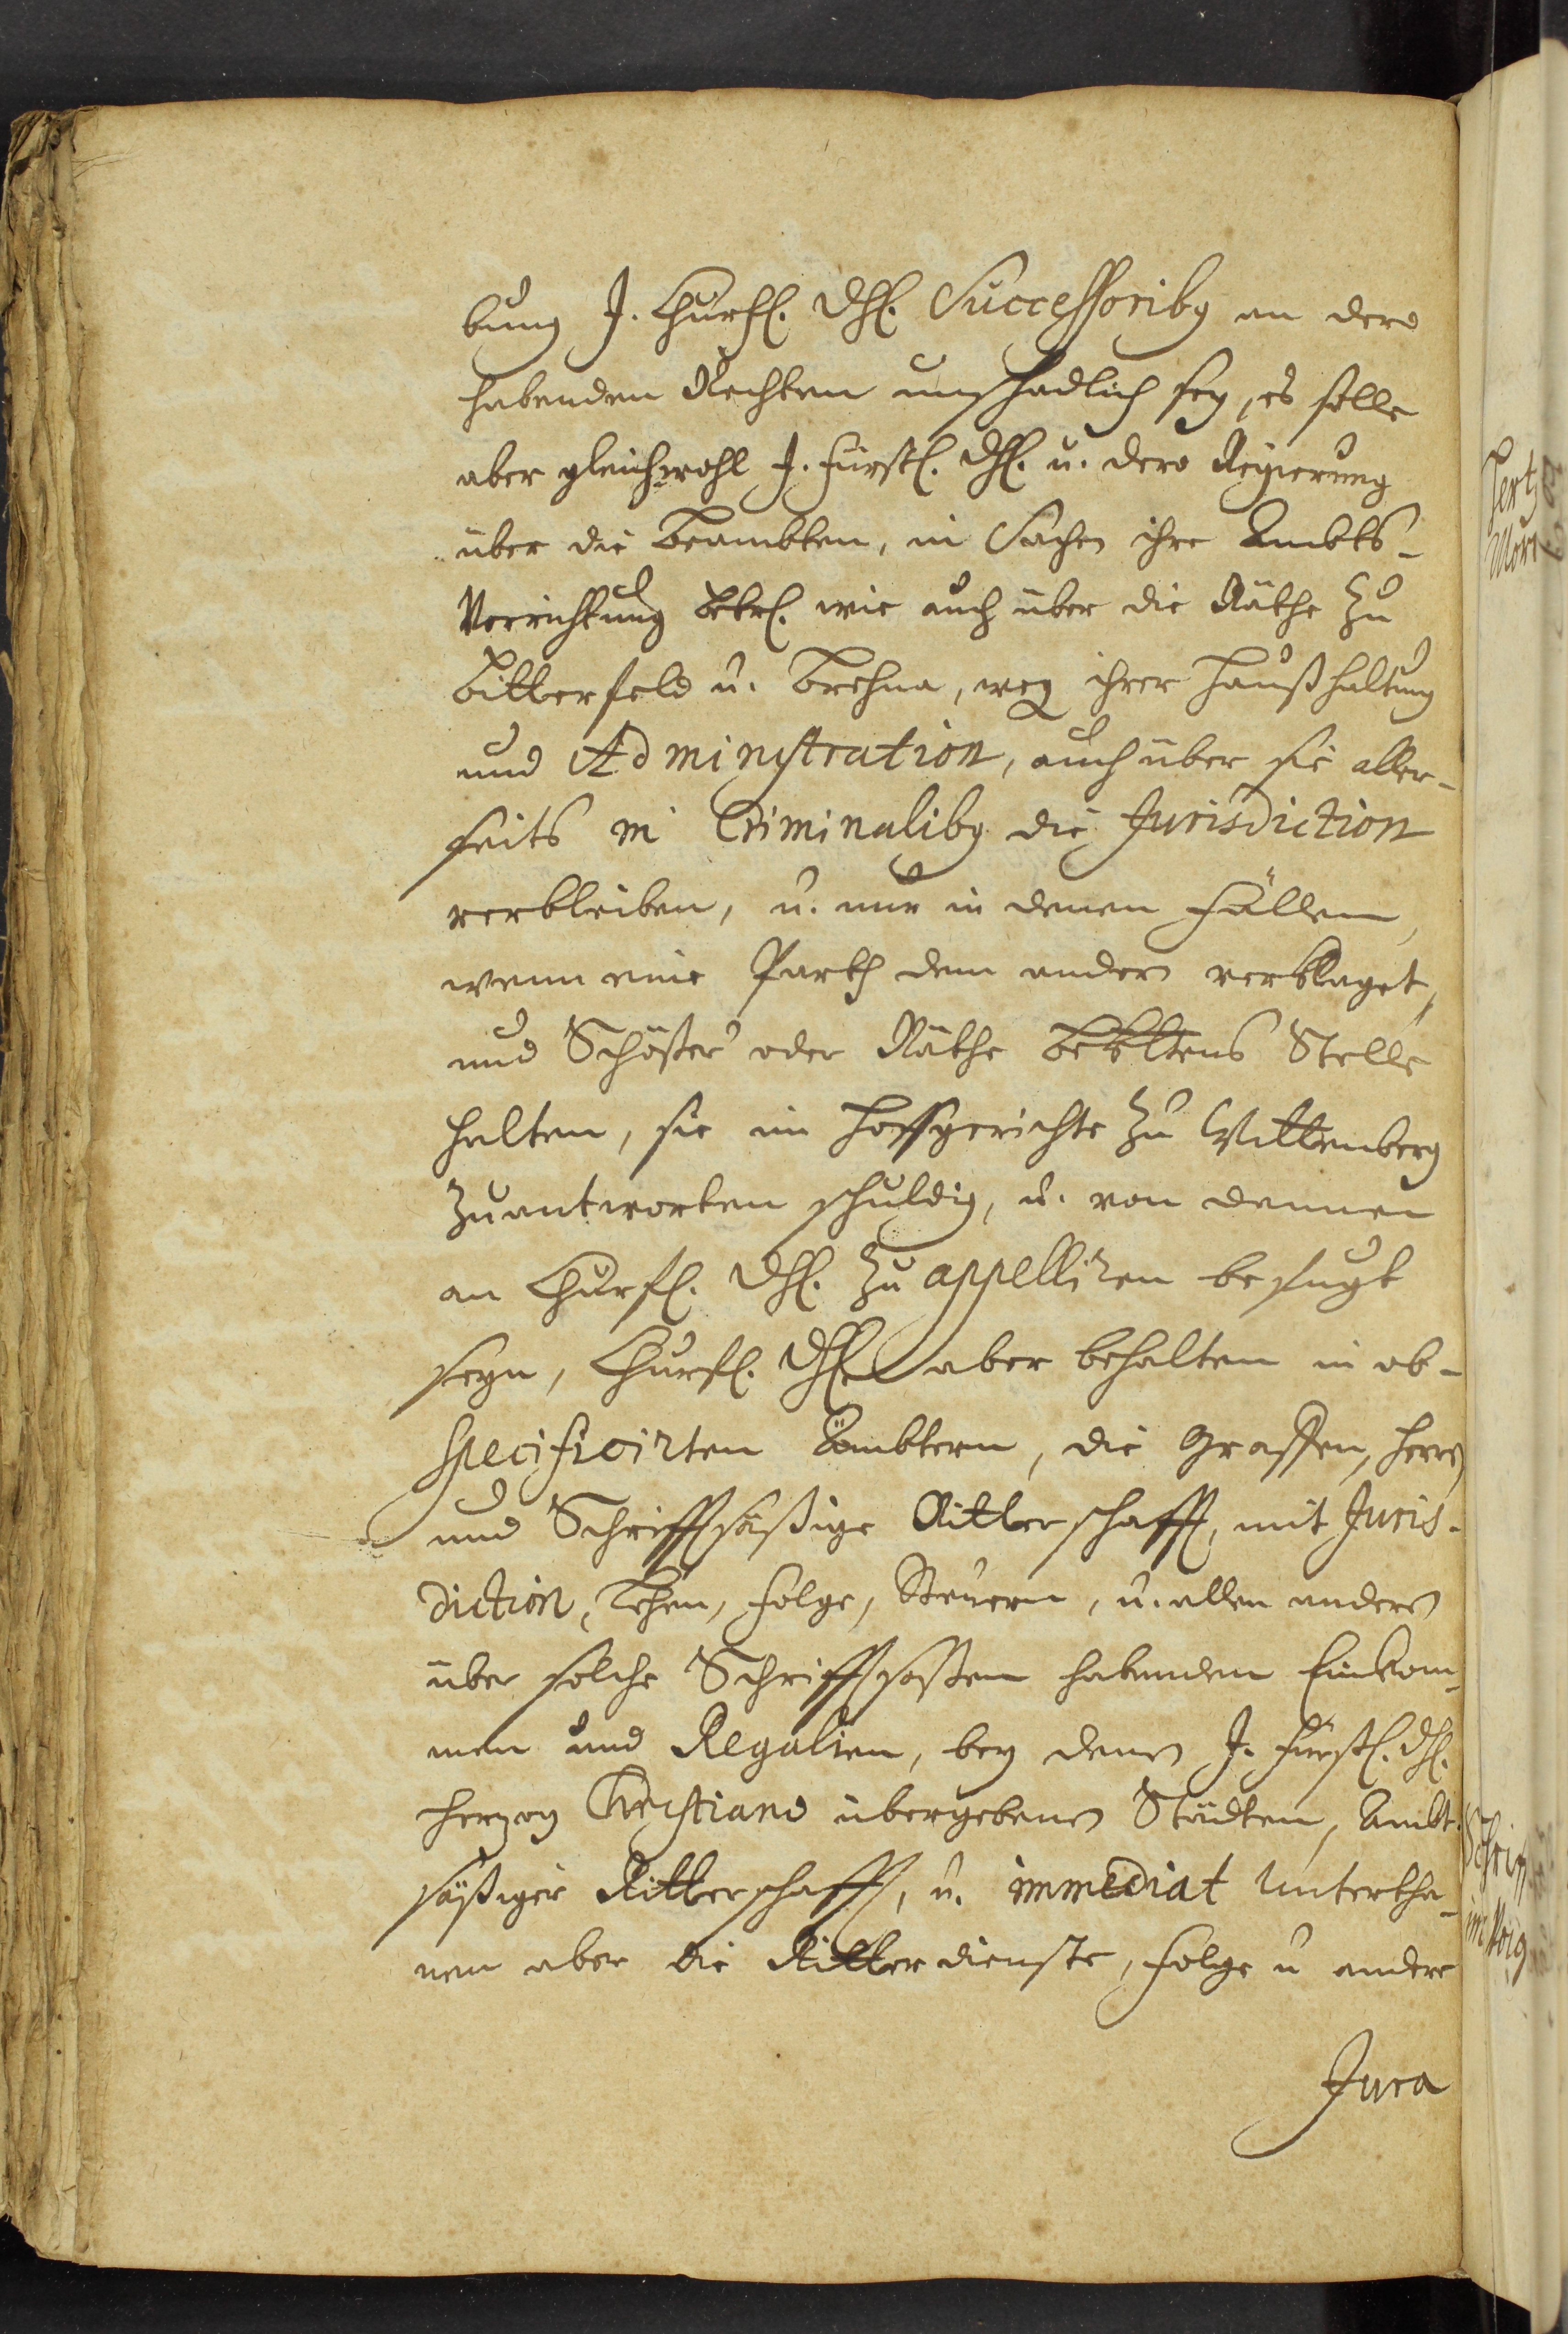 bung J. Churfl. Dhl. Successoribg an dero
habenden Rechten unschadlich sey, es solle
aber gleichwohl J. Fürstl. Dhl. u. dero Regierung
über die Beambten, in Sachen ihre Ambts-
Verrichtung betrl. wie auch über die Räthe zu
Bitterfeld u. Brehna, weg ihrer Haußhaltung
und Administration, auch über sie aller-
seits in Criminalibg die Jurisdiction
verbleiben, u. nur in denen Fällen,
wenn eine Parth dem andern verklaget,
und Schößer oder Räthe Stelle
halten, sie im Hoffgerichte zu Wittenberg
zuantworten schuldig, u. von dennen
an Churfl. Dhl. zu appelliren befugt
seyn, Churfl. Dhl. aber behalten in ob-
specificirten Ämbtern, die Graffen, Herrn
und Schrifftsäßige Ritterschafft, mit Juris-
diction, Lehen, Folge, Steuern, u. allen andern
über solche Schrifftsaßen habenden Einkom-
men und Regalien, bey denen J. Fürstl. Dhl.
Herzog Christiano übergebenen Städten, Ambt-
säßiger Ritterschafft, u. immediat Untertha-
nen aber die Ritterdienste, Folge u andere
Jura